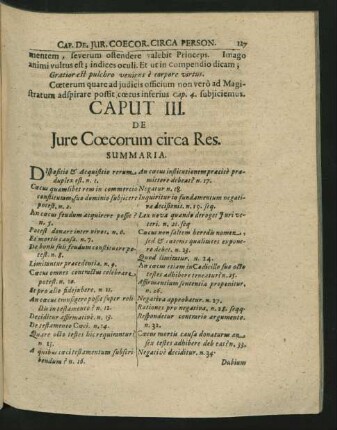 CAP. DE. JUR. COECOR. CIRCA PERSON. 127
mentem, severum ostendere valebit Princeps. Imago
animi vultus est; indices oculi. Et ut in compendio dicam;
Gratior est pulchro veniens è corpore virtus.
Cœterum quare ad judicis officium non verò ad Magi-
stratum adspirare possit cœcus inferius Cap. 4. subjiciemus.
CAPUT III.
DE
Jure Cœcorum circa Res.
SUMMARIA.
Dispositio & Acquisitio rerum
duplex est. n. 1.
Cœcus quamlibet rem in commercio
constitutam suo dominio subjicere
potest. n. 2.
An cœcus feudum acquirere posse?
n. 3.
Potest donare inter vivos. n. 6.
Et mortis causa. n. 7.
De bonis suis feudum constituere po-
test. n. 8.
Limitantur præcedentia. n. 9.
Cœcus omnes contractus celebrare
potest. n. 10.
Et pro aliis fidejubere. n. 11.
An cœcus transigere possit super reli-
ctis in testamento? n. 12.
Deciditur affirmativè. n. 13.
De testamento Cœci. n. 14.
Quare octo testes hic requirantur?
n. 15.
A quibus cœci testamentum subscri-
bendum? n. 16.
An cœcus institutionem præcisè præ-
mittere debeat? n. 17.
Negatur n. 18.
Inquiritur in fundamentum negati-
væ decisionis. n. 19. seq.
Lex nova quando deroget Juri ve-
teri. n. 21. seq.
Cœcus non saltem heredis nomen,
sed & utentes qualitates expone-
re debet. n. 23.
Quod limitatur. n. 24.
An cœcus etiam in Codicillo suo octo
testes adhibere teneatur? n. 25.
Affirmantium sententia proponitur.
n. 26.
Negativa approbatur. n. 27.
Rationes pro negativa. n. 28. seqq.
Respondetur contrario argumento.
n. 32.
Cœcus mortis causa donaturus an
5. testes adhibere debeat? n. 33.
Negativè deciditur. n. 34.
Dubium